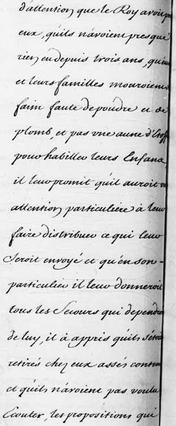 d'attention que le Roy avoit p
eux, quils n'avoient presque
rien eu depuis trois ans, qu'eux
et leurs familles mouroient
faim faute de poudre et de
plomb, et pas une aune d'
pour habiller leurs Enfans
il leur promit quil auroit
attention particuliere à leur
faire distribuer ce qui leur
Seroit envoyé et qu'en son
particulier il leur donneroit
tous les Secours qui dependro
de luy, il à appris quils s'étoi
retirés chez eux assés conten
et quils n'avoient pas voulu
Ecouter, les propositions qui